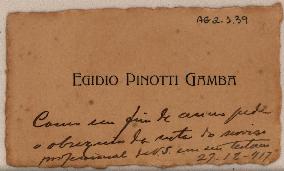 AG2.3.39
EGIDIO PINOTTI GAMBA
Como em fim de anno pede
o obrezumo da nota do serviço
profissional de V.S. em seu
27-12-917